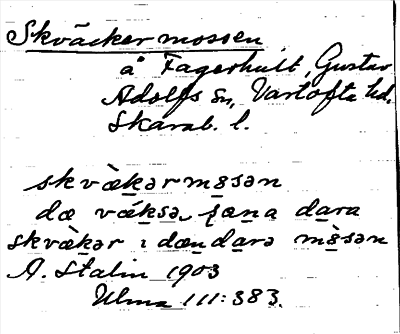 Skväckermossen
å Fagerhult, Gustav
Adolfs sn, Vartofta hd.
Skarab. l.
skvæ̀kər mɷsən
dæ væ̀ksə ɟæna dara
skvæ̀kər ı dæn darə mɷ̀sən
A. Stalin 1903
Ulma 111:383.